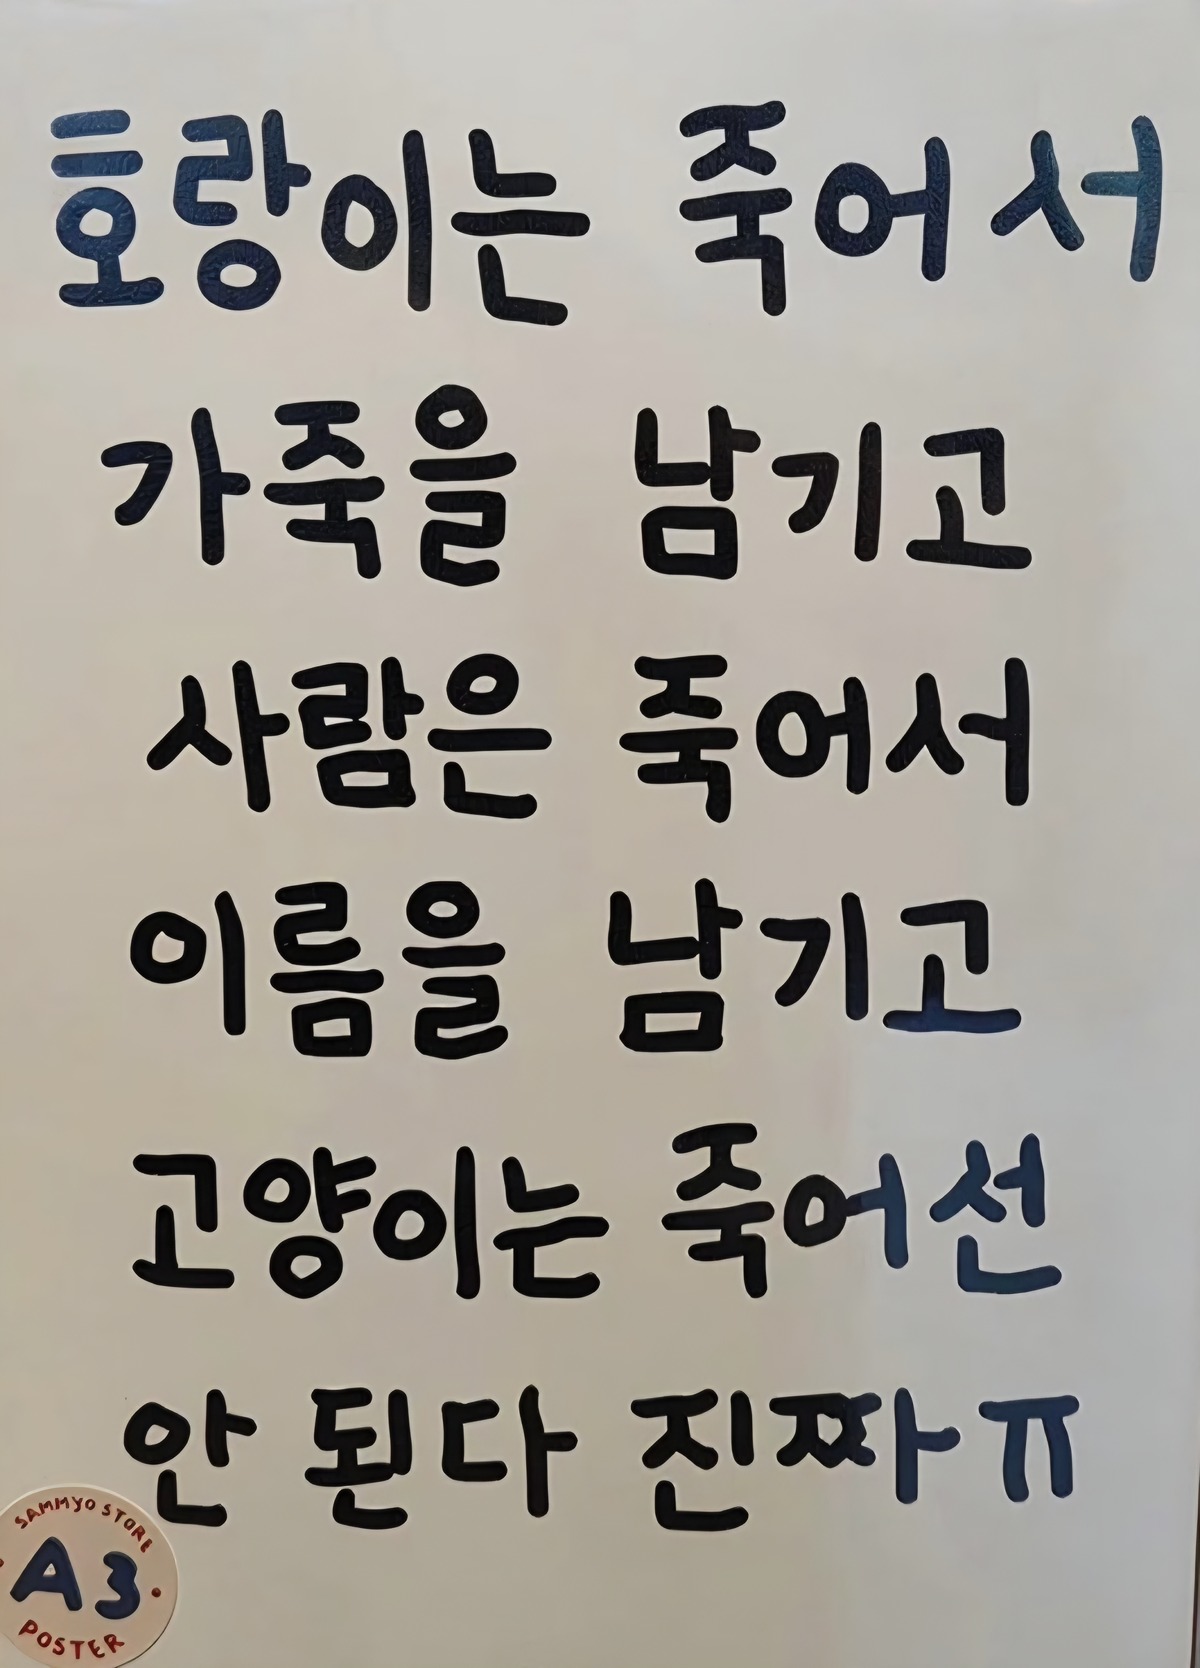 호랑이는 죽어서
가죽을 남기고
사람은 죽어서
이름을 남기고
고양이는 죽어선
안 된다 진짜ㅠ
SAMMYO STORE
A3
POSTER